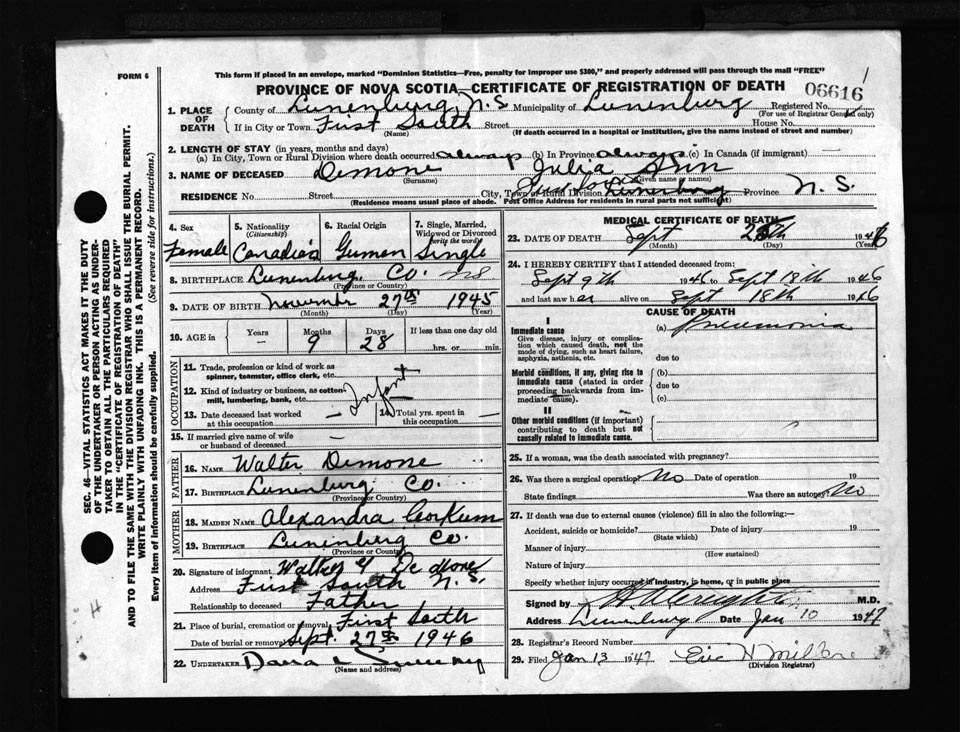 FORM 6
This form if placed in an envelope, marked "Dominion Statistics—Free, penalty for improper use $300," and properly addressed will pass through the mail "FREE"
PROVINCE OF NOVA SCOTIA—CERTIFICATE OF REGISTRATION OF DEATH
06616
1. PLACE OF DEATH { County of Lunenburg, N.S Municipality of Lunenburg Registered No.
(For use of Registrar General only)
If in City or Town First South Street House No.
(Name) (If death occurred in a hospital or institution, give the name instead of street and number)
2. LENGTH OF STAY (in years, months and days)
(a) In City, Town or Rural Division where death occurred always (b) In Province always (c) In Canada (if immigrant) —
3. NAME OF DECEASED Demone Julia Ann
(Surname) (Given name or names)
RESIDENCE No. Street City, Town or Rural Division Lunenburg Province N. S.
(Residence means usual place of abode. Post Office Address for residents in rural parts not sufficient)
4. Sex Female
5. Nationality (Citizenship) Canadian
6. Racial Origin German
7. Single, Married, Widowed or Divorced (write the word) Single
8. BIRTHPLACE Lunenburg Co. NS
(Province or Country)
9. DATE OF BIRTH November 27th 1945
(Month) (Day) (Year)
10. AGE in { Years — Months 9 Days 28 If less than one day old hrs. or min.
OCCUPATION
11. Trade, profession or kind of work as spinner, teamster, office clerk, etc.
12. Kind of industry or business, as cotton-mill, lumbering, bank, etc. Infant
13. Date deceased last worked at this occupation —
14. Total yrs. spent in this occupation —
15. If married give name of wife or husband of deceased —
FATHER
16. NAME Walter Demone
17. BIRTHPLACE Lunenburg Co.
(Province or Country)
MOTHER
18. MAIDEN NAME Alexandra Corkum
19. BIRTHPLACE Lunenburg Co.
(Province or Country)
20. Signature of informant Walter
Address First South N. S.
Relationship to deceased Father
21. Place of burial, cremation or removal First South
Date of burial or removal Sept. 27th 1946
22. UNDERTAKER Dana L Sweeny
(Name and address)
MEDICAL CERTIFICATE OF DEATH
23. DATE OF DEATH Sept 25th 1946
(Month) (Day) (Year)
24. I HEREBY CERTIFY that I attended deceased from:
Sept 9th 1946 to Sept 18th 1946
and last saw her alive on Sept 18th 1946
CAUSE OF DEATH
I
Immediate cause (a) Pneumonia
Give disease, injury or complication which caused death, not the mode of dying, such as heart failure, asphyxia, asthenia, etc.
due to
Morbid conditions, if any, giving rise to immediate cause (stated in order proceeding backwards from immediate cause).
(b)
due to
(c)
II
Other morbid conditions (if important) contributing to death but not causally related to immediate cause.
25. If a woman, was the death associated with pregnancy?
26. Was there a surgical operation? No Date of operation 19
State findings Was there an autopsy? No
27. If death was due to external causes (violence) fill in also the following:—
Accident, suicide or homicide? Date of injury 19
(State which)
Manner of injury
(How sustained)
Nature of injury
Specify whether injury occurred in industry, in home, or in public place
Signed by M.D.
Address Lunenburg Date Jan 10 1947
28. Registrar's Record Number
29. Filed Jan 13 1947 Eric H
(Division Registrar)
SEC. 46—VITAL STATISTICS ACT MAKES IT THE DUTY
OF THE UNDERTAKER OR PERSON ACTING AS UNDER-
TAKER TO OBTAIN ALL THE PARTICULARS REQUIRED
IN THE "CERTIFICATE OF REGISTRATION OF DEATH"
AND TO FILE THE SAME WITH THE DIVISION REGISTRAR WHO SHALL ISSUE THE BURIAL PERMIT.
WRITE PLAINLY WITH UNFADING INK. THIS IS A PERMANENT RECORD.
Every item of information should be carefully supplied. (See reverse side for instructions.)